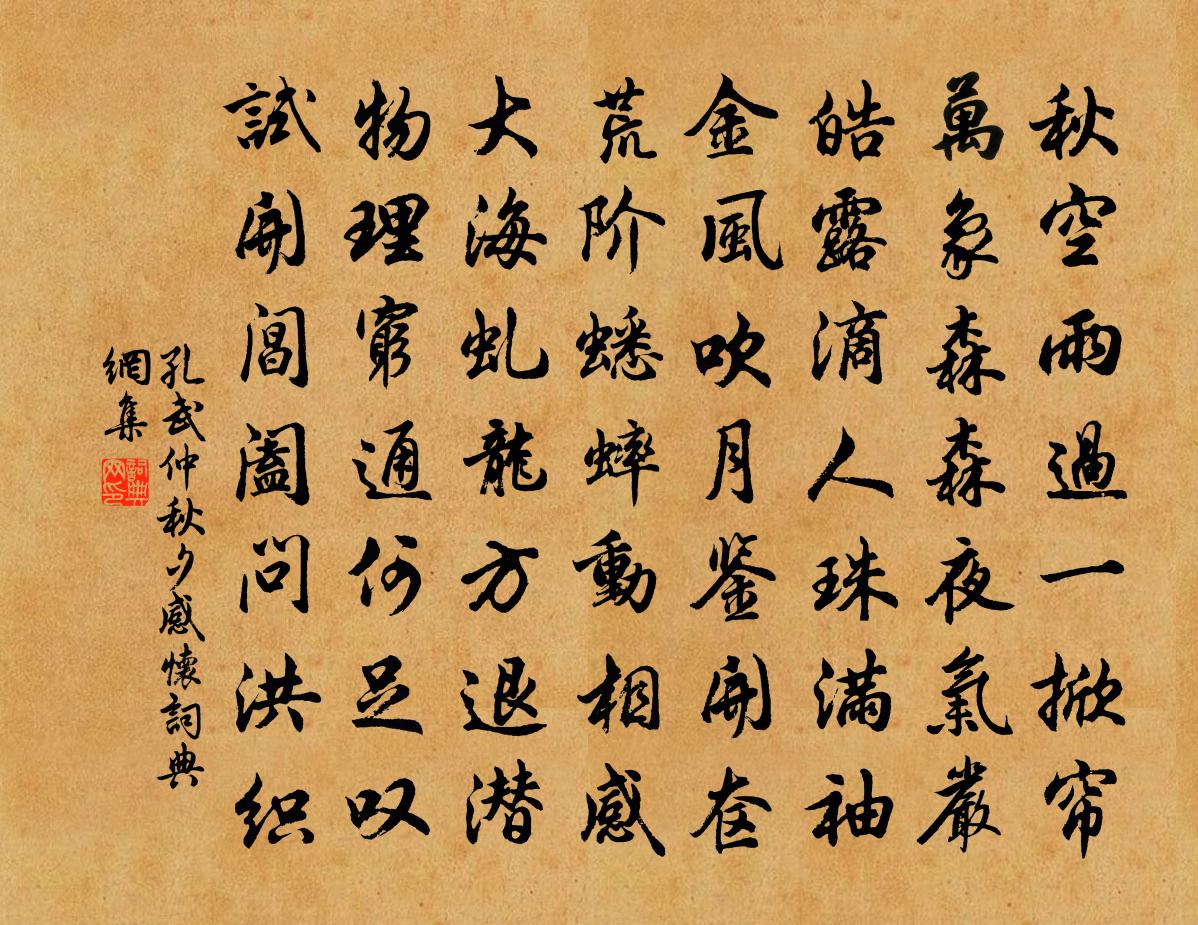 秋空雨過一掀帘
萬象森森夜氣嚴
皓露滴人珠滿袖
金風吹月鉴開奁
荒阶蟋蟀動相感
大海虬龍方退潜
物理窮通何足叹
試開閶闔問洪织
孔武仲秋夕感懷詞典
網集
詞典
网印